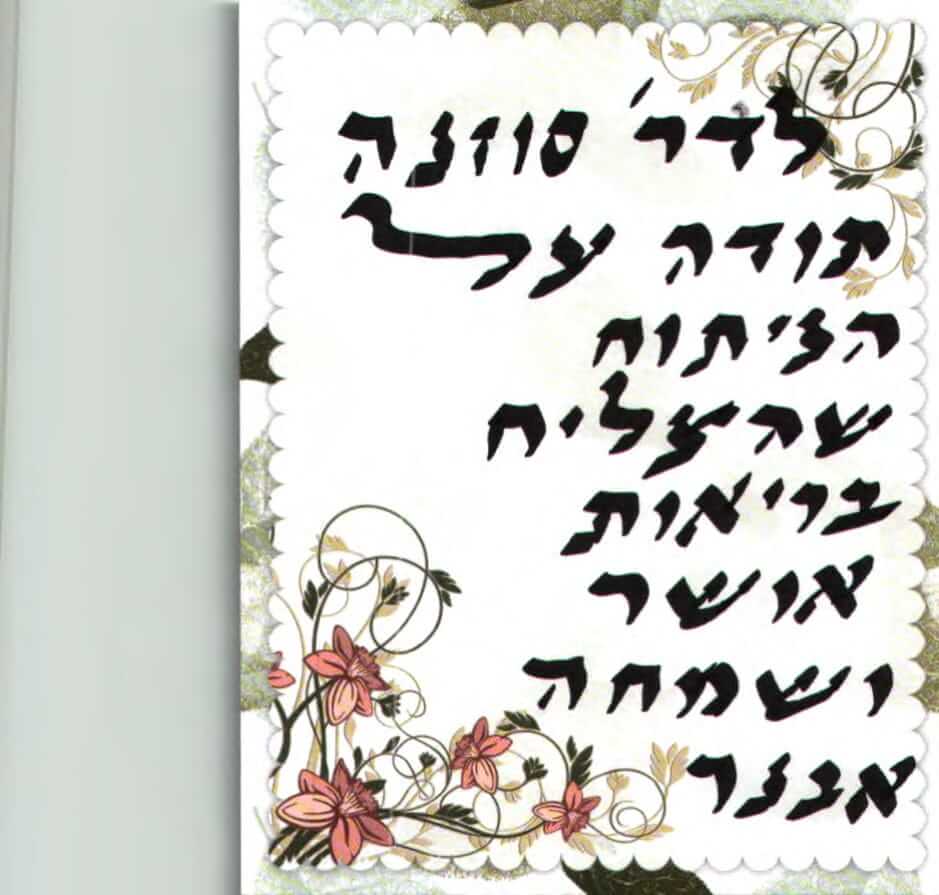 לדר' סוזנה
תודה על
הניתוח
שהצליח
בריאות
אושר
ושמחה
אבנר